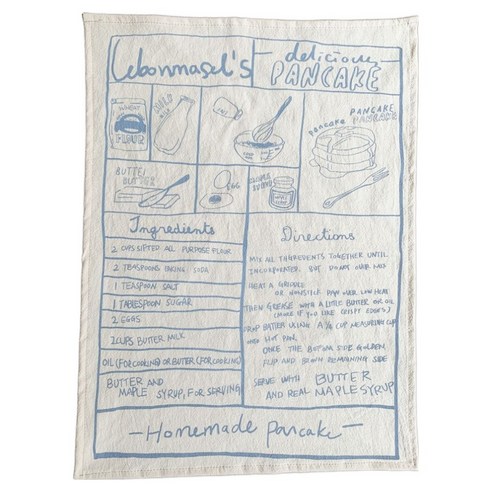 Lebonmasel's delicious
PANCAKE
WHEAT
FLOUR
MILK
PANCAKE
PANCAKE
Pancake
BUTTER
BUTTER
EGG
Ingredients
2 CUPS SIFTED ALL PURPOSE FLOUR
2 TEASPOONS BAKING SODA
1 TEASPOON SALT
1 TABLESPOON SUGAR
2 EGGS
2 CUPS BUTTER MILK
OIL (FOR COOKING) OR BUTTER (FOR COOKING)
BUTTER AND
MAPLE SYRUP, FOR SERVING
Directions
MIX ALL INGREDIENTS TOGETHER UNTIL
INCORPORATED. BUT DO NOT OVER MIX
HEAT A GRIDDLE
OR NONSTICK PAN OVER LOW HEAT
THEN GREASE WITH A LITTLE BUTTER OR OIL
(MORE IF YOU LIKE CRISPY EDGES)
DROP BATTER USING A ¼ CUP MEASURING CUP
ONTO HOT PAN.
ONCE THE BOTTOM SIDE GOLDEN,
FLIP AND BROWN REMAINING SIDE
SERVE WITH BUTTER
AND REAL MAPLE SYRUP
-Homemade Pancake-